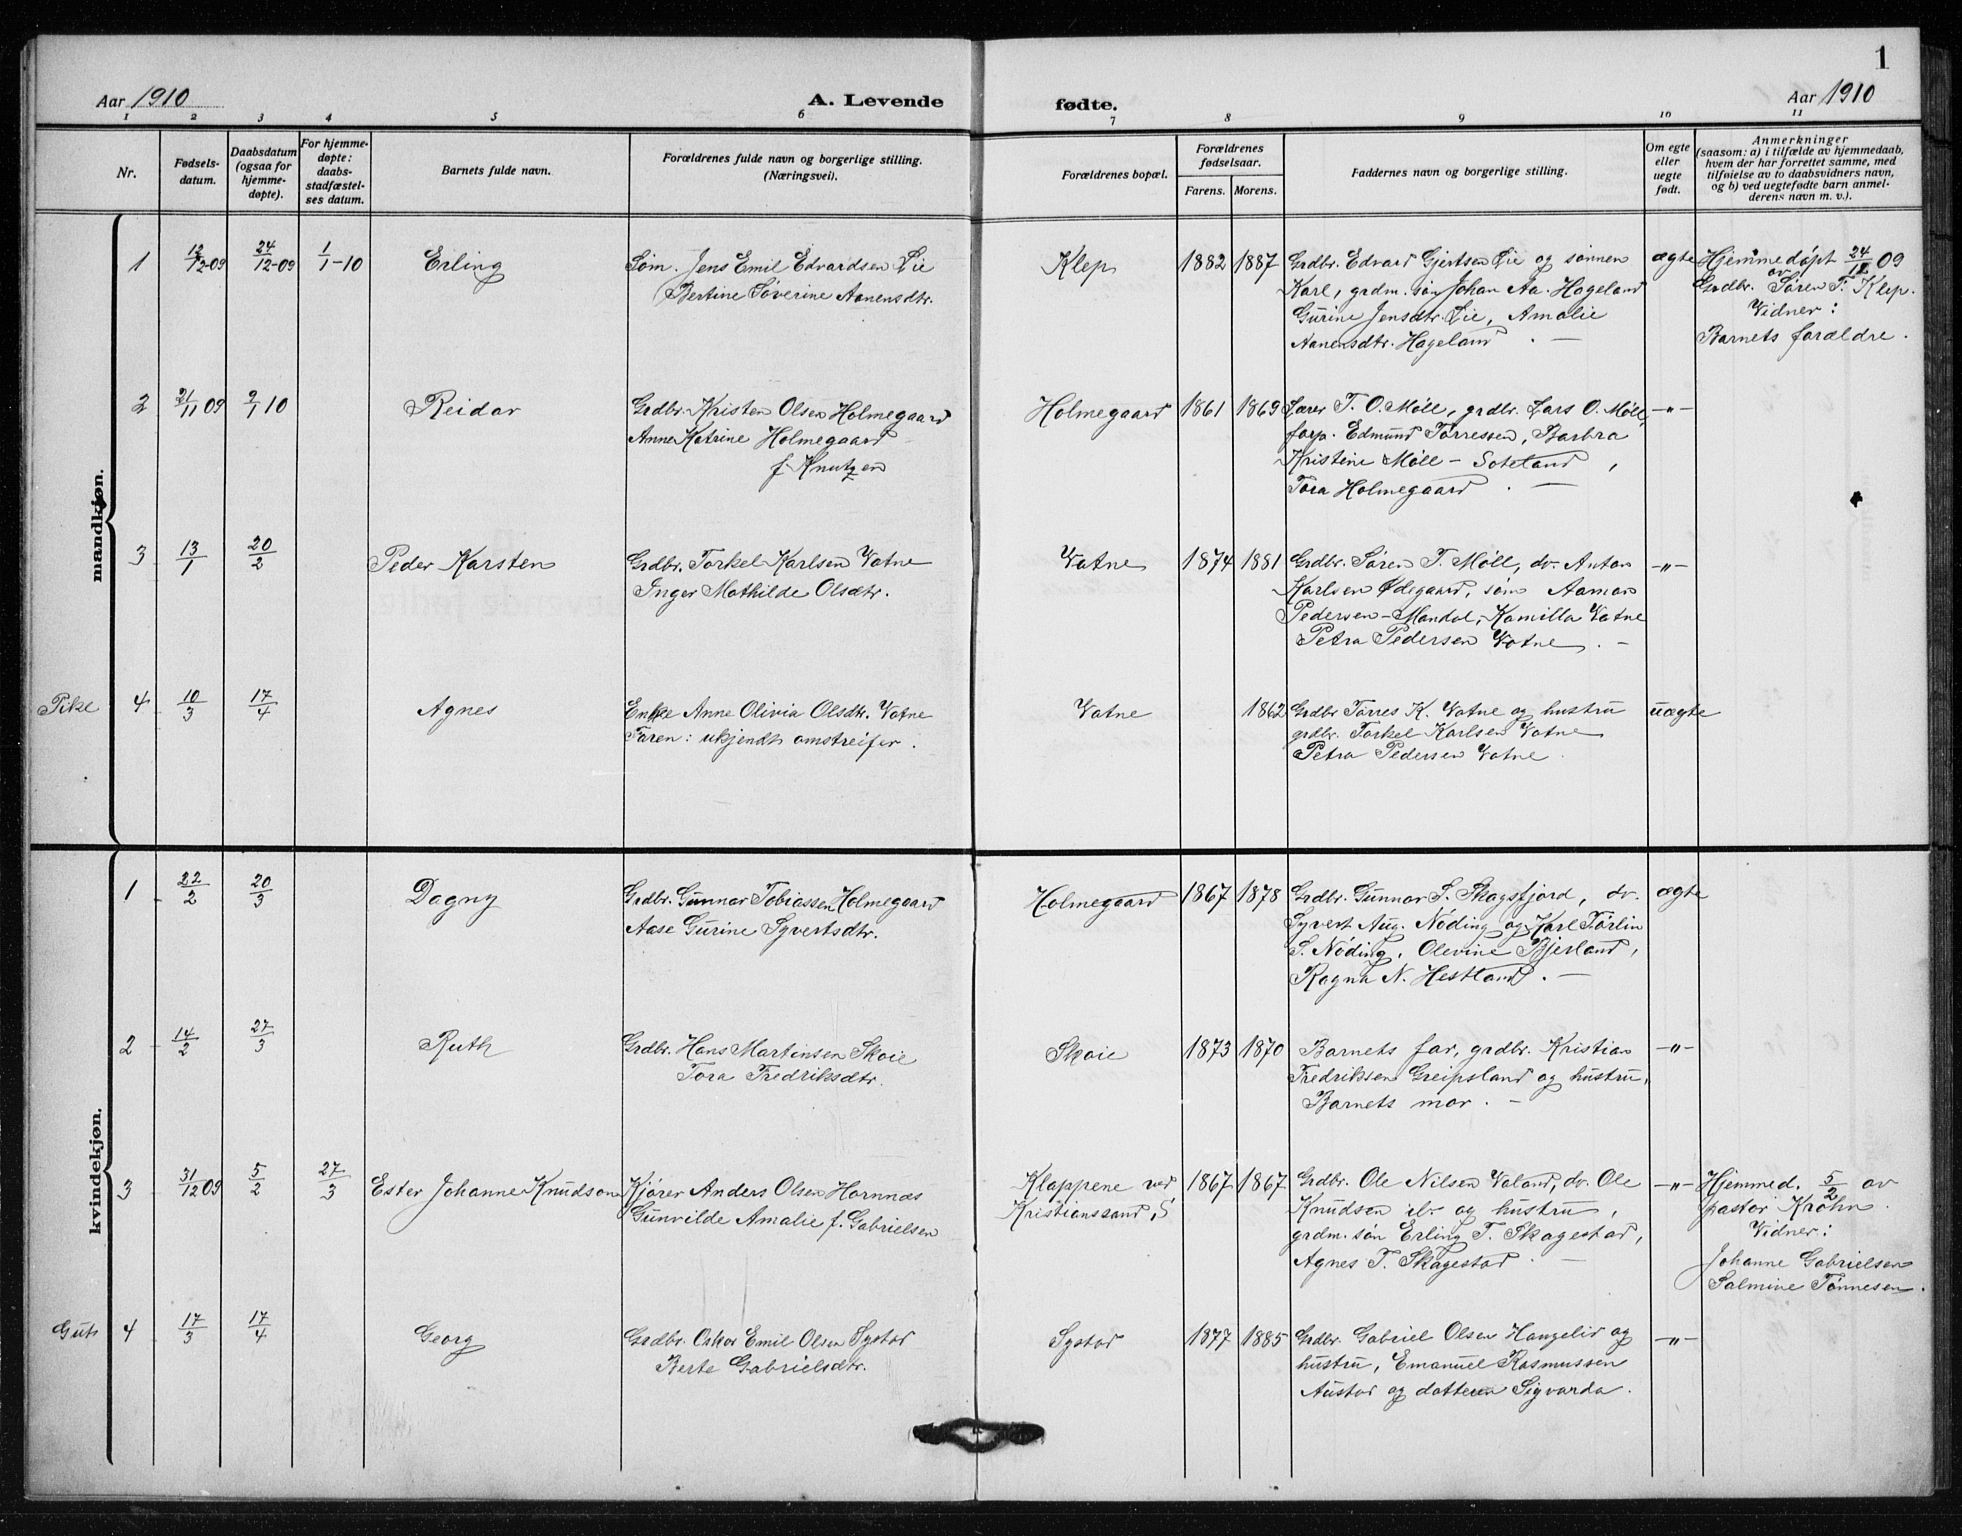 1
Aar 1910
A. Levende
fødte.
Aar 1910
1 2 3 4 5 6 7 8 9 10 11
Nr.
Fødsels-
datum.
Daabsdatum
(ogsaa for
hjemme-
døpte).
For hjemme-
døpte:
daabs-
stadfæstel-
ses datum.
Barnets fulde navn.
Forældrenes fulde navn og borgerlige stilling.
(Næringsvei).
Forældrenes bopæl.
Forældrenes
fødselsaar.
Farens. Morens.
Faddernes navn og borgerlige stilling.
Om egte
eller
uegte
født.
Anmerkninger
(saasom: a) i tilfælde av hjemmedaab,
hvem der har forrettet samme, med
tilføielse av to daabsvidners navn,
og b) ved uegtefødte barn anmel-
derens navn m. v.).
mandkjøn.
1
12/12-09
24/12-09
1/1-10
Erling
Søm. Jens Emil Edvardsen Øie
Bertine Severine Aanensdtr.
Klep
1882 1887
Grdbr. Edvard Gjertsen Øie og sønnen
Karl, grdm. søn Johan Aa. Hageland
Gurine Jensdtr. Øie, Amalie
Aanensdtr. Hageland . —
ægte
Hjemmedøpt 24/12 09
av
Grdbr. Søren T. Klep.
Vidner:
Barnets forældre.
2
21/11 09
9/1 10
Reidar
Grdbr. Kristen Olsen Holmegaard
Anne Katrine Holmegaard
f. Knutzen
Holmegaard
1861 1869
Lærer T. O. Møll, grdbr. Lars O. Møll,
forp. Edmund Torressen, Barbra
Kristine Møll - Soteland,
Tora Holmegaard . —
-"-
3
13/1
20/2
Peder Karsten
Grdbr. Torkel Karlsen Vatne
Inger Mathilde Olsdtr.
Vatne
1874 1881
Grdbr. Søren T. Møll, do. Anton
Karlsen Ødegaard, søm Aamon
Pedersen - Mandal, Kamilla Vatne
Petra Pedersen Vatne . -
-"-
Pike
4
10/3
17/4
Agnes
Enke Anne Olivia Olsdtr. Vatne
Faren: ukjendt omstreifer.
Vatne
1862
Grdbr Torres K. Vatne og hustru
grdbr. Torkel Karlsen Vatne
Petra Pedersen Vatne.
uægte
kvindekjøn.
1
22/2
20/3
Dagny
Grdbr. Gunnar Tobiassen Holmegaard
Aase Gurine Syvertsdtr.
Holmegaard
1867 1878
Grdbr. Gunnar S. Skagsfjord, do.
Syvert Aug. Nøding og Karl Torlin
S. Nøding, Olevine Bjerland,
Ragna N. Hestland . —
ægte
2
14/2
27/3
Ruth
Grdbr. Hans Martinsen Skoie
Tora Fredriksdtr.
Skoie
1873 1870
Barnets far, grdbr. Kristian
Fredriksen Greipsland og hustru,
Barnets mor. -
-"-
3
31/12 09
5/2
27/3
Ester Johanne Knudson
Kjører Anders Olsen Hornnæs
Gunvilde Amalie f. Gabrielsen
Klappene ved
Kristianssand, S
1867 1867
Grdbr. Ole Nilsen Valand, do. Ole
Knudsen ib. og hustru,
grdm. søn Erling T. Skagestad,
Agnes T. Skagestad . —
-"-
Hjemmed. 5/2 av
pastor Krohn.
Vidner:
Johanne Gabrielsen
Salmine Tønnesen.
Gut
4
17/3
17/4
Georg
Grdbr. Oskar Emil Olsen Systad
Berte Gabrielsdtr.
Systad
1877 1885
Grdbr. Gabriel Olsen Haugelid og
hustru, Emanuel Rasmussen
Austad og datteren Sigvarda.
-"-